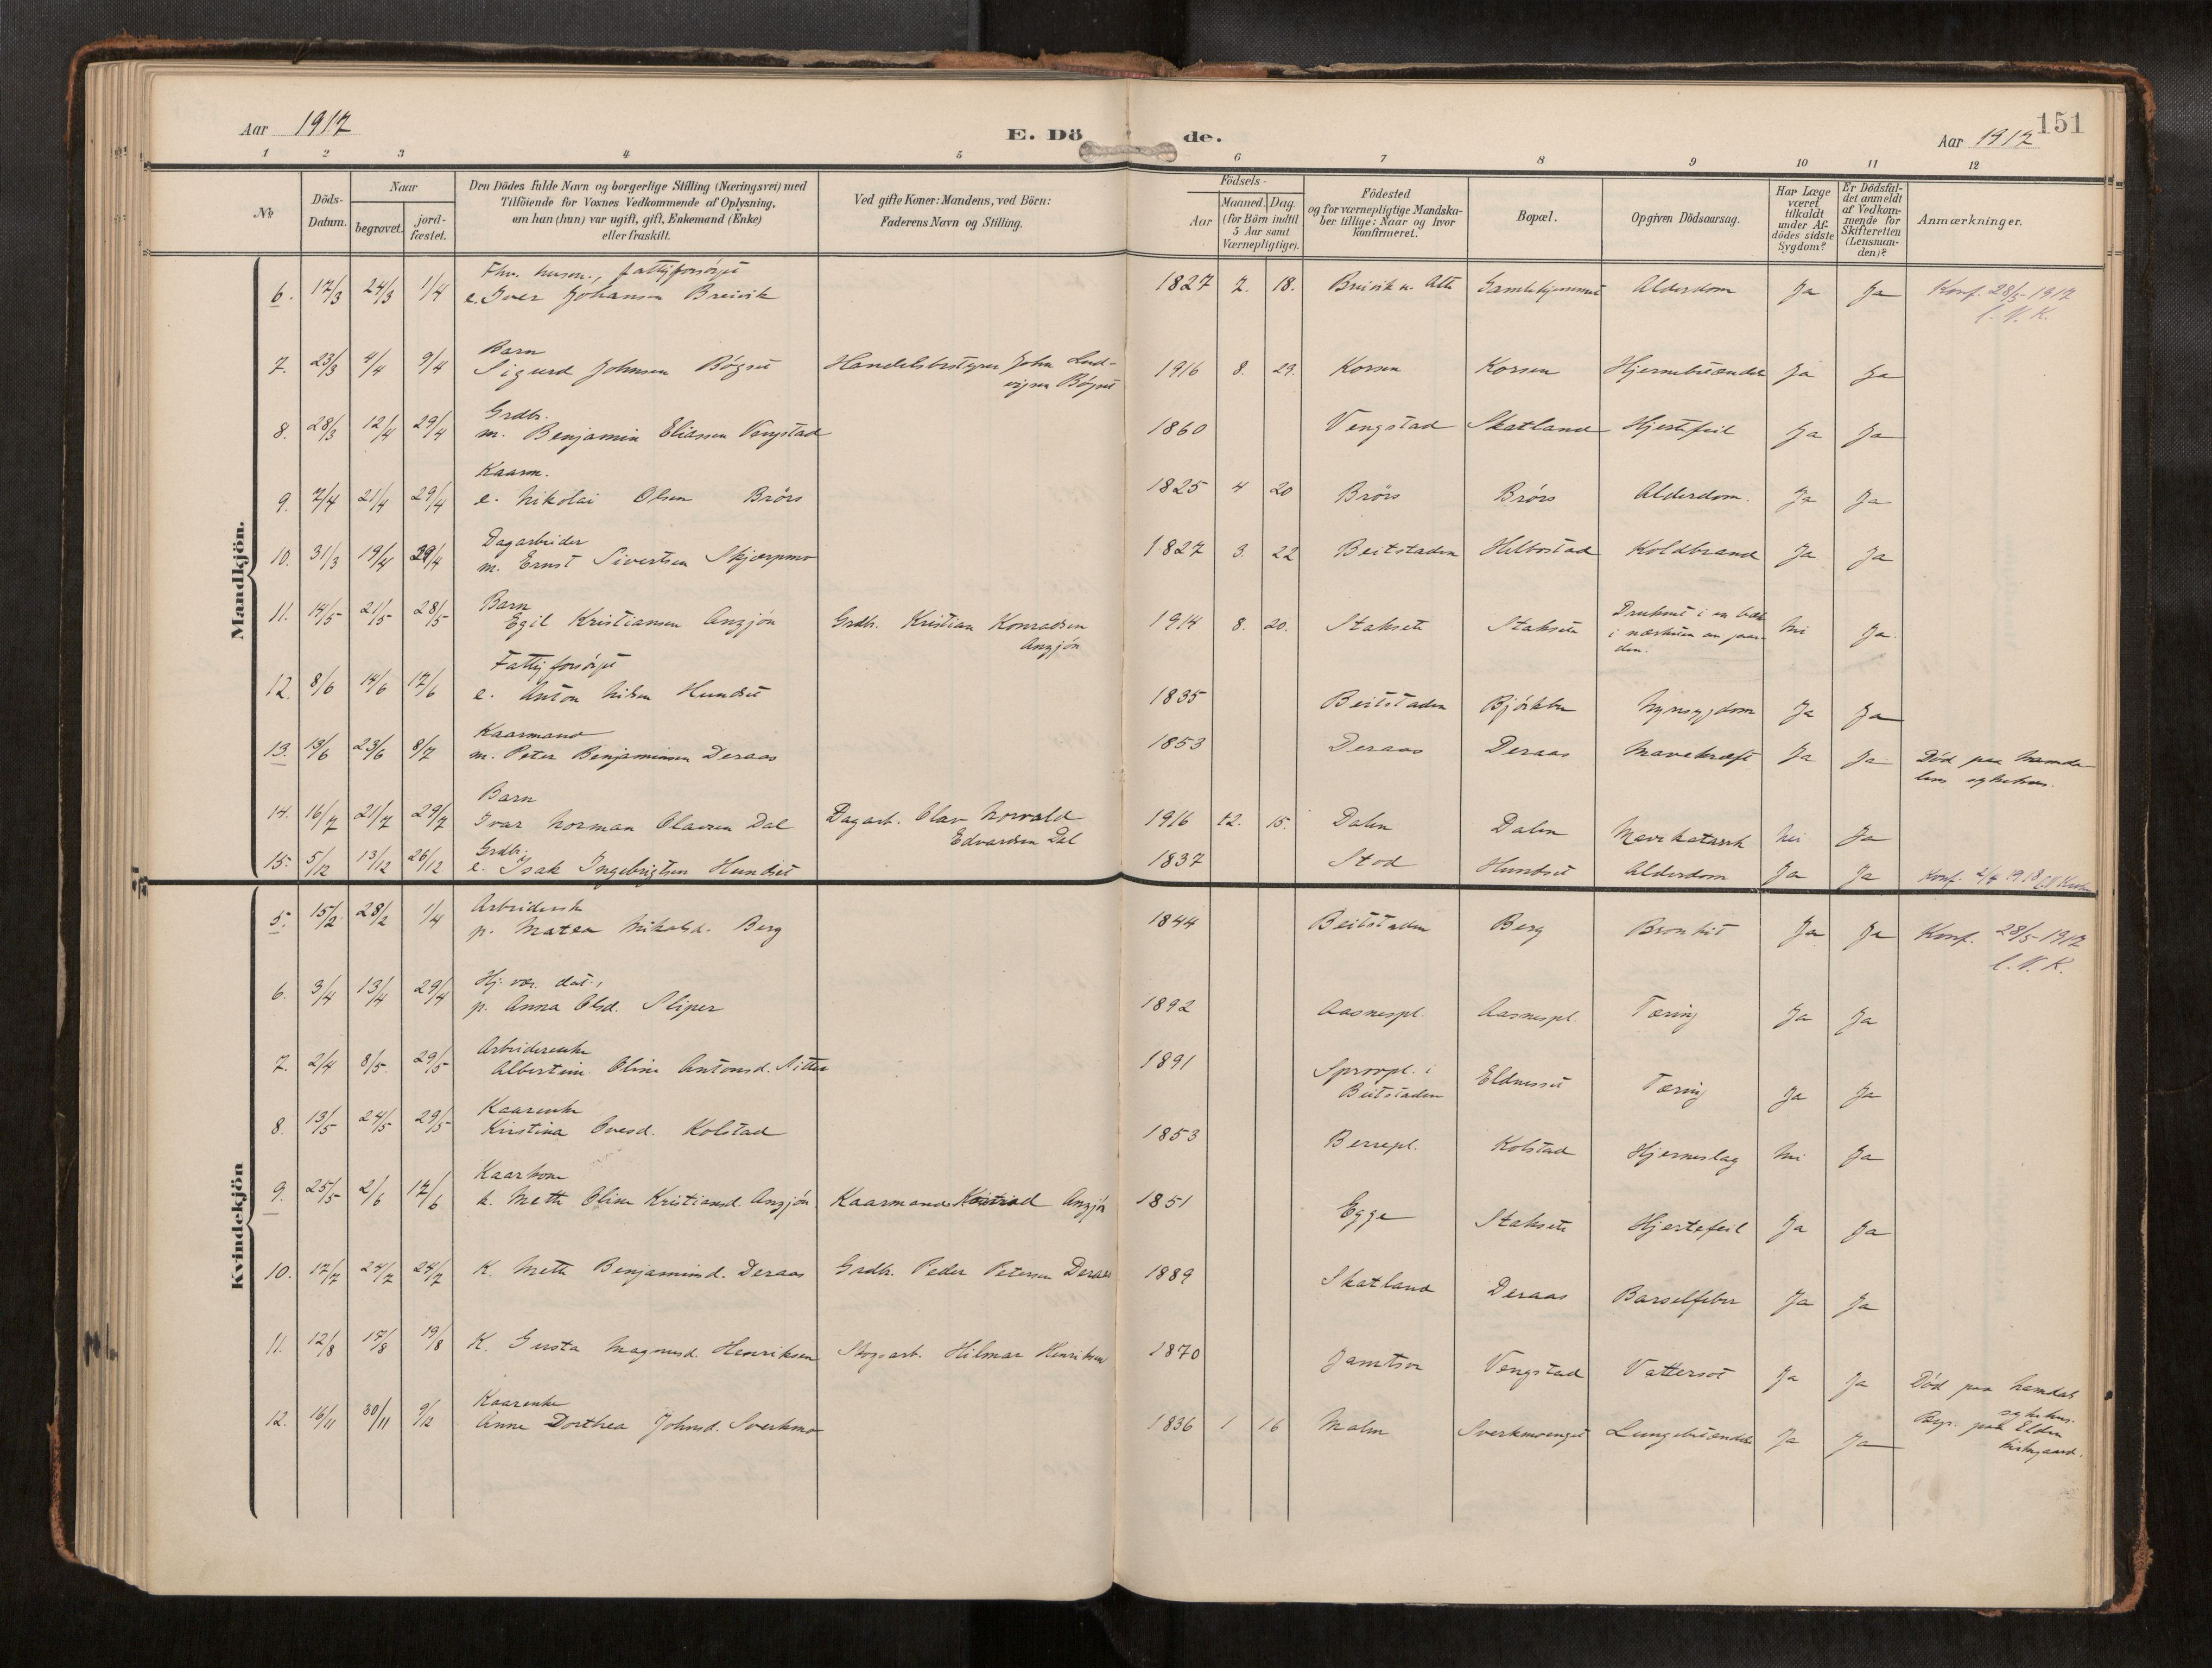 Aar 1917
E. Dö de.
Aar 1917
151
1 2 3 4 5 6 7 8 9 10 11 12
No
Döds-Datum.
Naar
begravet.
jord-fæstet.
Den Dödes fulde Navn og borgerlige Stilling (Næringsvei) med
Tilföiende for Voxnes Vedkommende af Oplysning,
om han (hun) var ugift, gift, Enkemand (Enke)
eller fraskilt.
Ved gifte Koner: Mandens, ved Börn:
Faderens Navn og Stilling.
Födsels-
Aar
Maaned. Dag.
(for Börn indtil
5 Aar samt
Værnepligtige).
Födested
og for værnepligtige Mandska-
ber tillige: Naar og hvor
konfirmeret.
Bopæl.
Opgiven Dödsaarsag.
Har Læge
været
tilkaldt
under Af-
dödes sidste
Sygdom?
Er Dödsfal-
det anmeldt
af Vedkom-
mende for
Skifteretten
(Lensman-
den)?
Anmærkninger.
Mandkjön.
Fhv. husm., fattigforsörget
6. 17/3 24/3 1/4 e. Iver Johansen Breivik 1827 7. 18. Breivik Gamlehjemmet Alderdom Ja Ja Konf. 28/5-1917
C. N. K.
Barn
7. 23/3 4/4 9/4 Sigurd Johnsen Bögset Handelsbestyrer John Lud-
vigsen Bögset 1916 8. 29. Korsen Korsen Hjernebetændelse Ja Ja
Grdbr.
8. 28/3 12/4 29/4 m. Benjamin Eliassen Vengstad 1860 Vengstad Skatland Hjertefeil Ja Ja
Kaarm.
9. 7/4 21/4 29/4 e. Nikolai Olsen Brörs 1825 4 20 Brörs Brörs Alderdom. Ja Ja
Dagarbeider
10. 31/3 19/4 29/4 m. Ernst Sivertsen Skjerpmo 1827 3. 22 Beitstaden Helbostad Koldbrand Ja Ja
Barn
11. 14/5 21/5 28/5 Egil Kristiansen Anzjön Grdbr. Kristian Konradsen
Anzjön 1914 8. 20. Staksete Staksete Druknet i en bæk
i nærheten av gaar-
den. Nei Ja.
Fattigforsörget
12. 8/6 14/6 17/6 e. Anton Nilsen Hundset 1835 Beitstaden Nyresygdom Ja Ja
Kaarmand
13. 13/6 23/6 8/7 m. Peter Benjaminsen Deraas 1853 Deraas Deraas Mavekræft Ja Ja Död paa Namda-
lens sykehus.
Barn
14. 16/7 21/7 29/7 Ivar Norman Olavsen Dal Dagarb. Olav Norvald
Edvardsen Dal 1916 12. 15. Dalen Dalen Mavekatarrh Nei Ja
Grdbr.
15. 5/12 13/12 26/12 e. Isak Ingebrigtsen Hundset 1837 Stod Hundset Alderdom Ja Ja Konf. 2/4 1918
Kvindekjön
Arbeiderske
5. 15/2 28/2 1/4 p. Matea Nikolsd. Berg 1844 Beitstaden Berg Bronkit Ja Ja Konf. 28/5-1917
C. N. K.
Hj. vær. dat.,
6. 3/4 13/4 29/4 p. Anna Olsd. Sliper 1892 Aasnespl. Aasnespl. Tæring Ja Ja
Arbeiderenke
7. 2/4 8/5. 29/5 Albertine Oline Antonsd. 1891 Sprovpl. i
Beitstaden Eldnesset Tæring Ja Ja
Kaarenke
8. 13/5 24/5 29/5 Kirstina Ovesd. Kolstad 1853 Berrepl. Kolstad Hjerneslag Nei Ja
Kaarkone
9. 25/5 2/6 17/6 k. Meth Oline Kristiansd. Anzjön Kaarmand Konrad Anzjön 1851 Egge Staksete Hjertefeil Ja Ja
10. 17/7 24/7 24/7 K. Meth Benjamind. Deraas Grdbr. Peder Petersen Deraas 1889 Skatland Deraas Barselfeber Ja Ja
11. 12/8 17/8 19/8 K. Gusta Magnusd. Henriksen Skogsarb. Hilmar Henriksen 1870 Jamtsv Vengstad Vattersot Ja Ja Död paa Namdal
sykehus.
Kaarenke
12. 16/11 30/11 9/12 Anne Dorthea Johnsd. Sverkmo 1836 1 16 Malm Sverkmoenget Lungebetændelse Ja Ja Begr. paa Elden
kirkegaard.